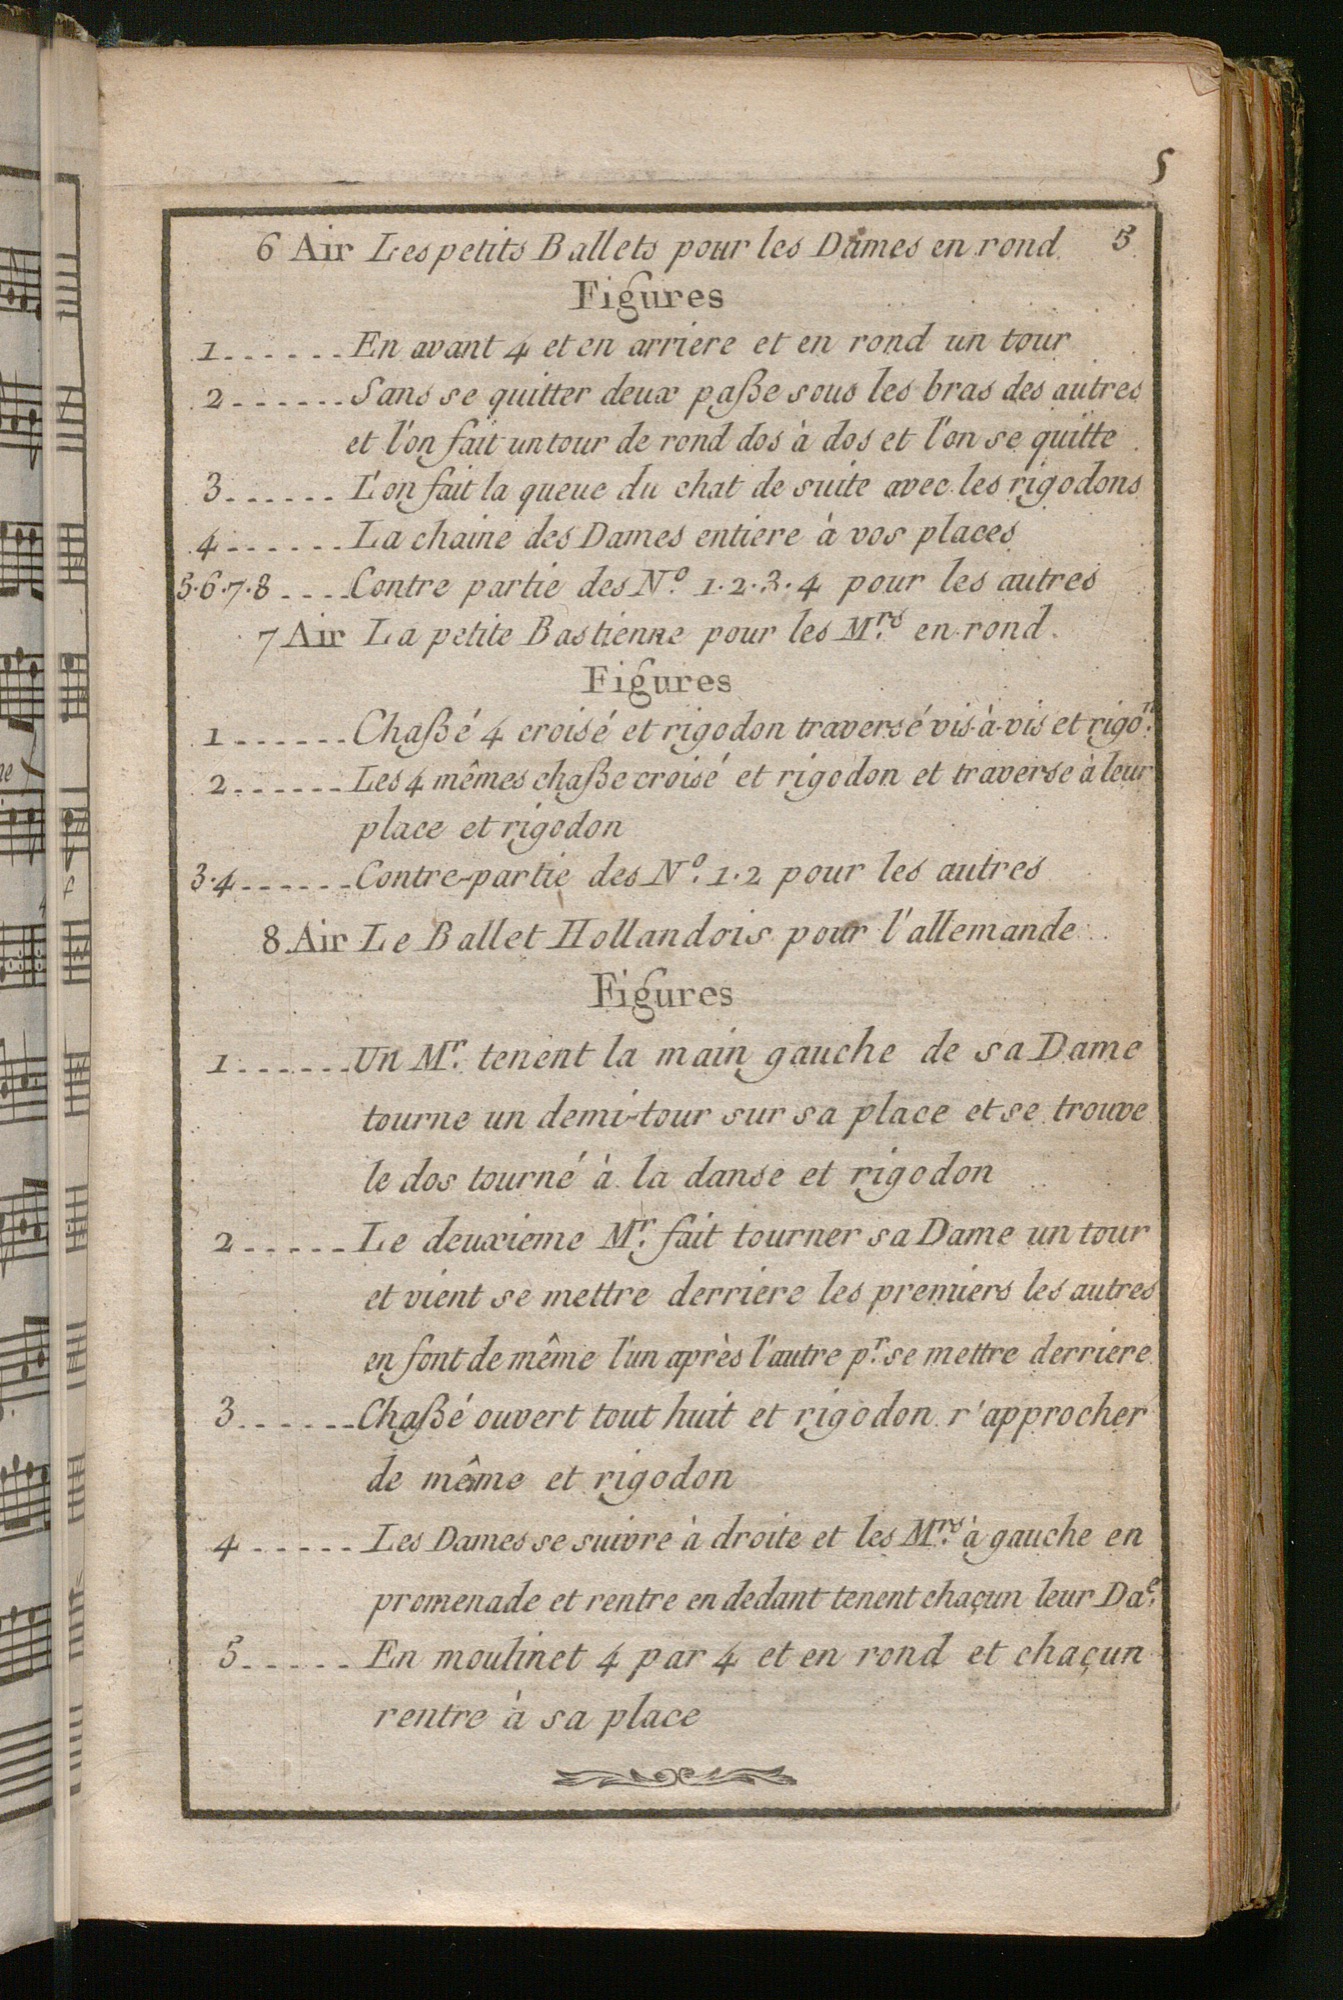 5
6 Air Les petits Ballets pour les Dames en rond 5
Figures
1 . . . . . . En avant 4 et en arriere et en rond un tour
2 . . . . . . Sans se quitter deux paße sous les bras des autres
et l'on fait un tour de rond dos à dos et l'on se quitte
3 . . . . . . L'on fait la queue du chat de suite avec les rigodons
4 . . . . . . La chaine des Dames entiere à vos places
5.6.7.8 . . . . Contre partie des N.º 1.2.3.4 pour les autres
7 Air La petite Bastienne pour les M.rs en rond.
Figures
1 . . . . . . Chaßé 4 croisé et rigodon traversé vis-à-vis et rigo.n
2 . . . . . . Les 4 mêmes chaße croisé et rigodon et traverse à leur
place et rigodon
3.4 . . . . . . Contre-partie des N.º 1.2 pour les autres
8 Air Le Ballet Hollandois pour l'allemande
Figures
1 . . . . . . Un M.r tenent la main gauche de sa Dame
tourne un demi-tour sur sa place et se trouve
le dos tourné à la danse et rigodon
2 . . . . . Le deuxieme M.r fait tourner sa Dame un tour
et vient se mettre derriere les premiers les autres
en font de même l'un après l'autre p.r se mettre derriere
3 . . . . . . Chaßé ouvert tout huit et rigodon r'approcher
de même et rigodon
4 . . . . . Les Dames se suivre à droite et les M.rs à gauche en
promenade et rentre en dedant tenent chaçun leur Da.e
5 . . . . . En moulinet 4 par 4 et en rond et chaçun
rentre à sa place